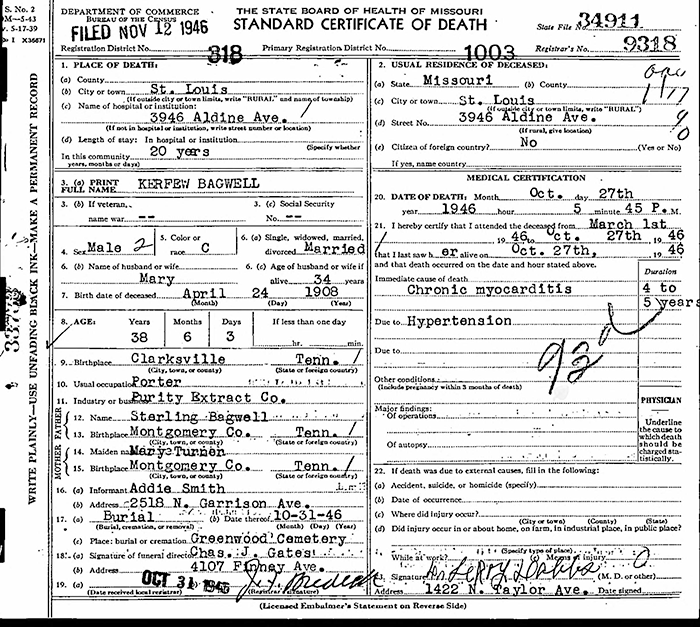 S. No. 2
DM—5-43
v. 5-17-39
I X36671
WRITE PLAINLY—USE UNFADING BLACK INK—MAKE A PERMANENT RECORD
DEPARTMENT OF COMMERCE
BUREAU OF THE CENSUS
FILED NOV 12 1946
THE STATE BOARD OF HEALTH OF MISSOURI
STANDARD CERTIFICATE OF DEATH
State File No. 34911
Registration District No. 318
Primary Registration District No. 1003
Registrar's No. 9318
1. PLACE OF DEATH:
(a) County
(b) City or town St. Louis
(If outside city or town limits, write "RURAL" and name of township)
(c) Name of hospital or institution:
3946 Aldine Ave.
(If not in hospital or institution, write street number or location)
(d) Length of stay: In hospital or institution
(Specify whether
In this community 20 years
years, months or days)
3. (a) PRINT FULL NAME KERFEW BAGWELL
3. (b) If veteran, name war --
3. (c) Social Security No. --
4. Sex Male 2
5. Color or race C
6. (a) Single, widowed, married, divorced Married
6. (b) Name of husband or wife Mary
6. (c) Age of husband or wife if alive 34 years
7. Birth date of deceased April 24 1908
(Month) (Day) (Year)
8. AGE: Years Months Days If less than one day
38 6 3 hr. min.
9. Birthplace Clarksville Tenn.
(City, town, or county) (State or foreign country)
10. Usual occupation Porter
11. Industry or business Purity Extract Co.
FATHER
12. Name Sterling Bagwell
13. Birthplace Montgomery Co. Tenn.
(City, town, or county) (State or foreign country)
MOTHER
14. Maiden name Mary Turner
15. Birthplace Montgomery Co. Tenn.
(City, town, or county) (State or foreign country)
16. (a) Informant Addie Smith
(b) Address 2518 N. Garrison Ave.
17. (a) Burial (b) Date thereof 10-31-46
(Burial, cremation, or removal) (Month) (Day) (Year)
(c) Place: burial or cremation Greenwood Cemetery
18. (a) Signature of funeral director Chas. J. Gates
(b) Address 4107 Finney Ave.
19. (a) OCT 31 1946
(Date received local registrar) (Registrar's signature)
2. USUAL RESIDENCE OF DECEASED:
(a) State Missouri (b) County
(c) City or town St. Louis
(If outside city or town limits, write "RURAL")
(d) Street No. 3946 Aldine Ave.
(If rural, give location)
(e) Citizen of foreign country? No (Yes or No)
If yes, name country
MEDICAL CERTIFICATION
20. DATE OF DEATH: Month Oct. day 27th
year 1946 hour 5 minute 45 P. M.
21. I hereby certify that I attended the deceased from March 1st
19 46 to Oct. 27th 19 46
that I last saw h er alive on Oct. 27th, 19 46
and that death occurred on the date and hour stated above.
Duration
Immediate cause of death
Chronic myocarditis 4 to 5 years
Due to Hypertension
Due to
92
Other conditions
(Include pregnancy within 3 months of death)
Major findings:
Of operations
Of autopsy
PHYSICIAN
Underline the cause to which death should be charged statistically.
22. If death was due to external causes, fill in the following:
(a) Accident, suicide, or homicide (specify)
(b) Date of occurrence
(c) Where did injury occur?
(City or town) (County) (State)
(d) Did injury occur in or about home, on farm, in industrial place, in public place?
(Specify type of place)
While at work? (e) Means of injury
Signature (M. D. or other)
Address 1422 N. Taylor Ave. Date signed
(Licensed Embalmer's Statement on Reverse Side)